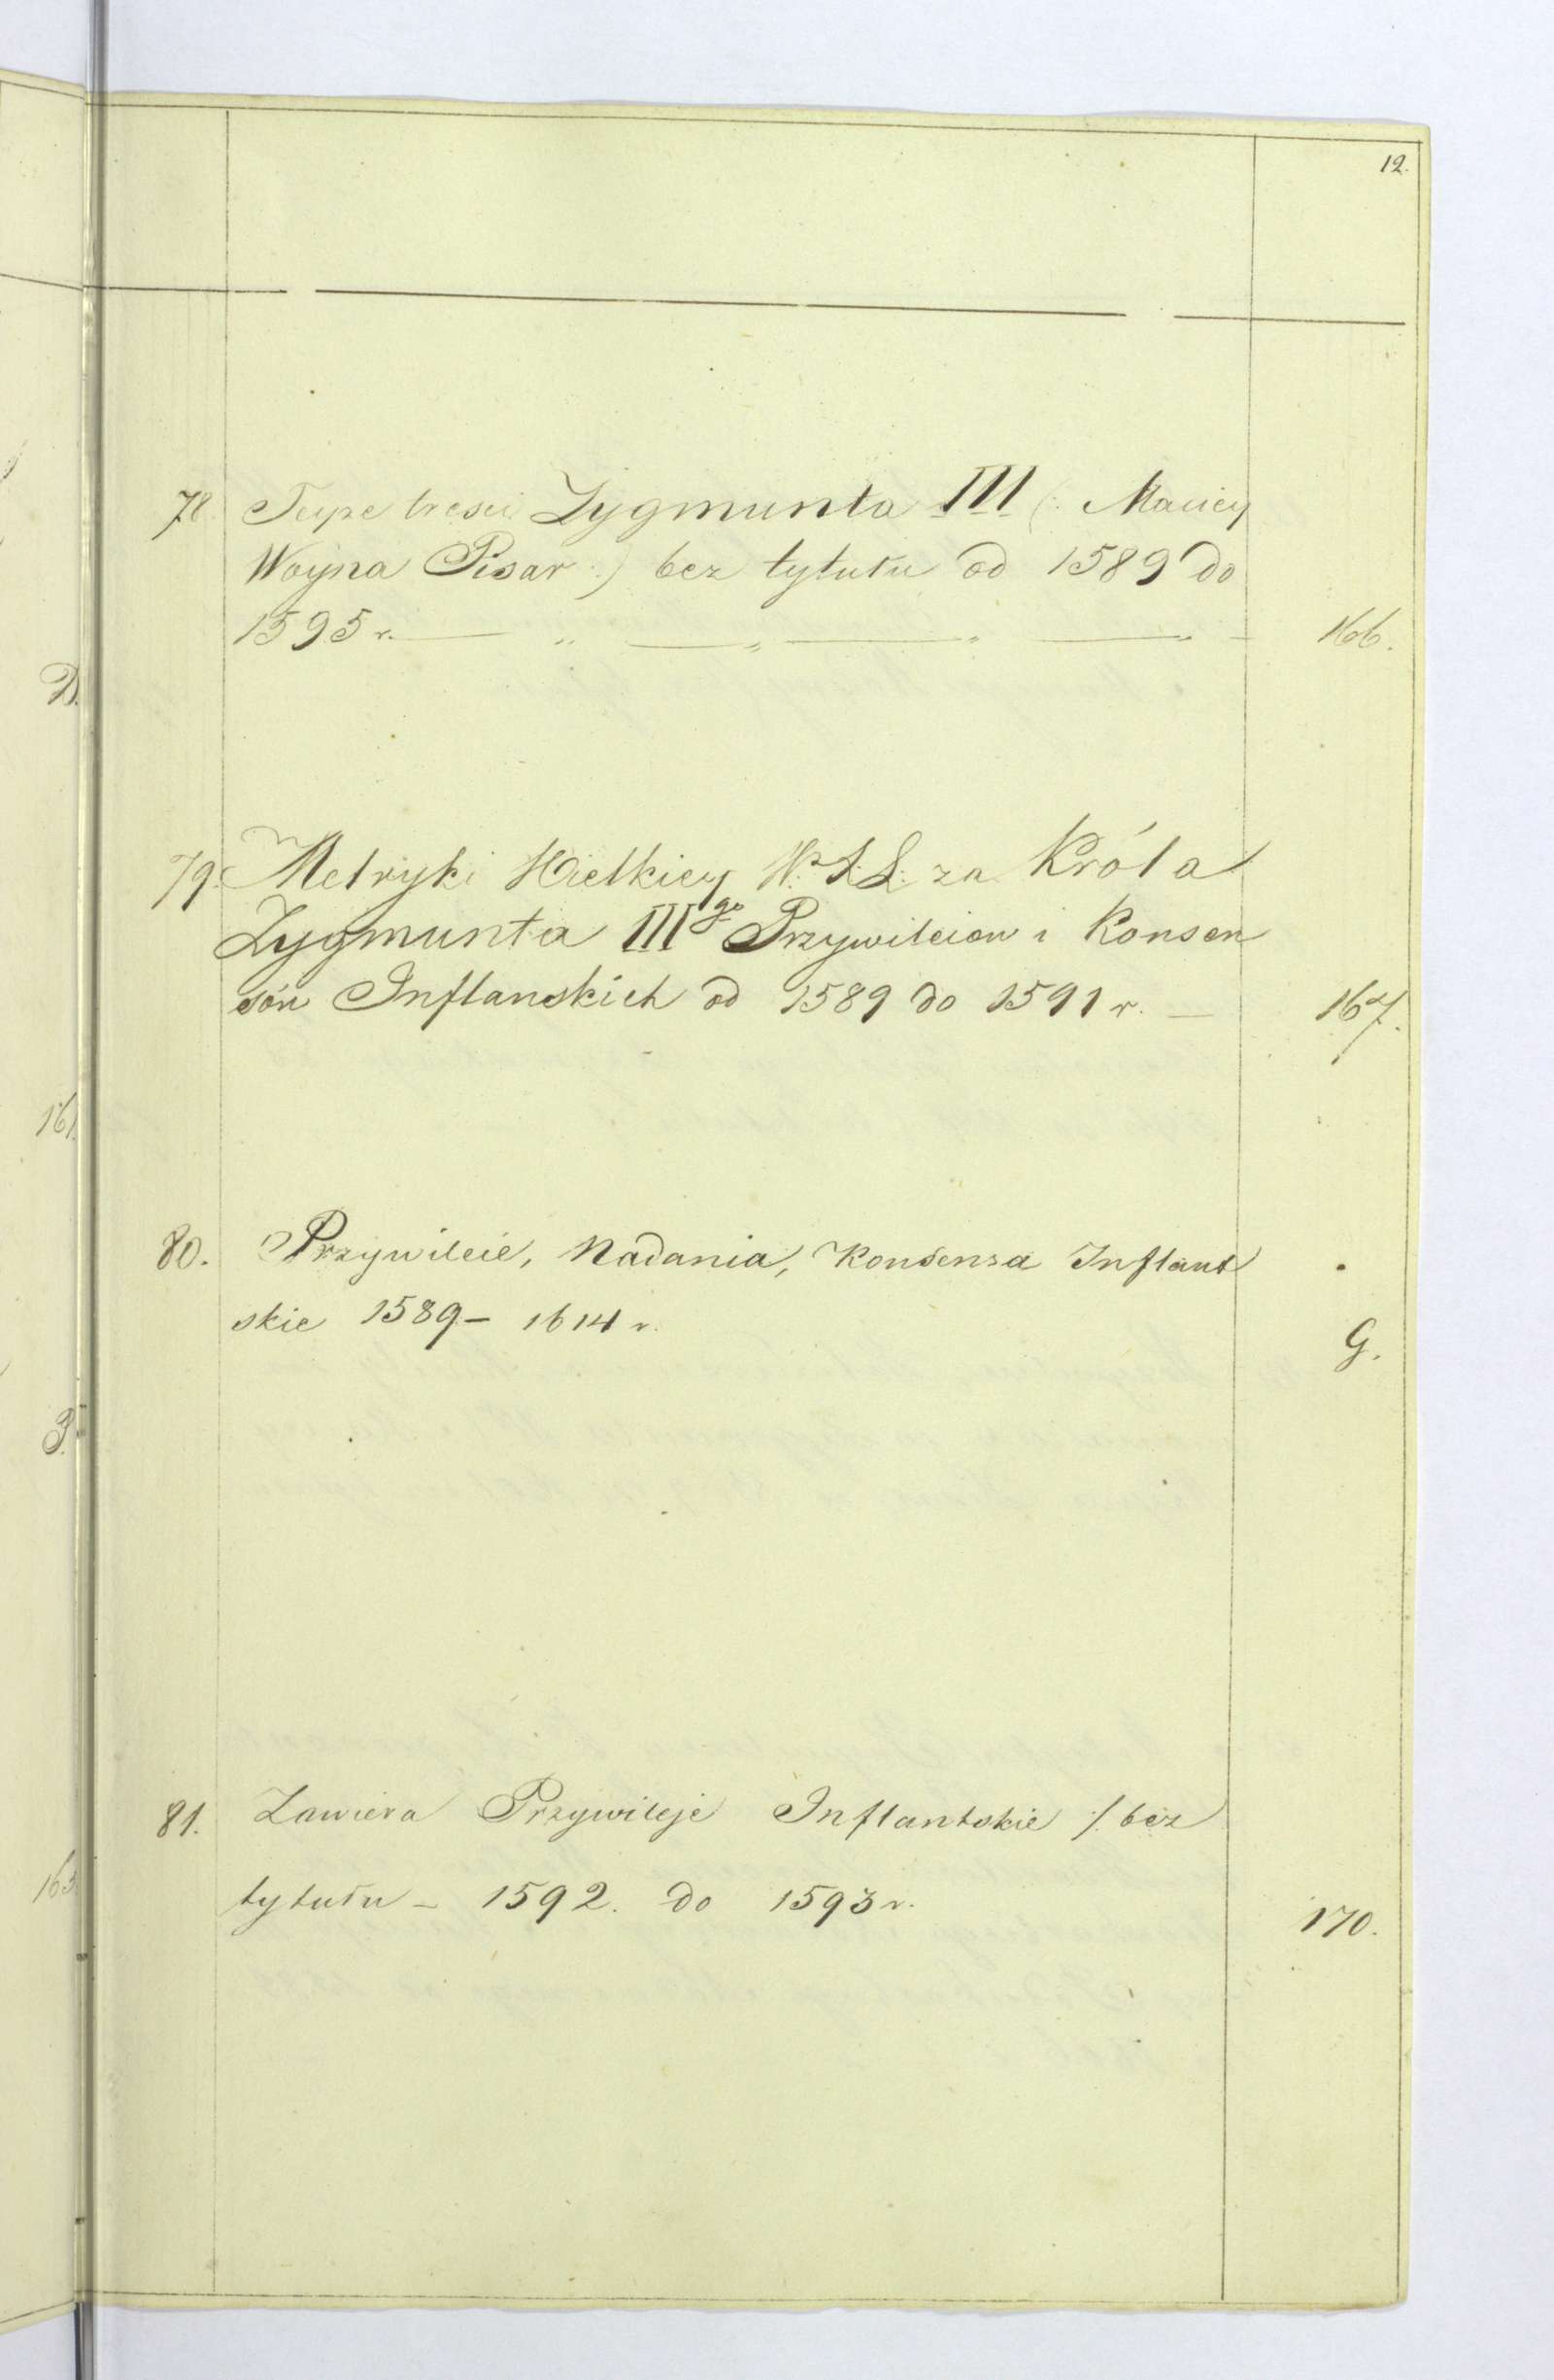 12.
78. Teyże treści Zygmunta III (: Maciey
Woyna Pisar :) bez tytułu od 1589 do
1595 r. 166.
79. Metryki Wielkiey W: X: L: za Króla
Zygmunta III go Przywileiow i Konsen
sów Inflanskich od 1589 do 1591 r. — 167.
80. Przywileie, Nadania, Konsensa Inflant
skie 1589 – 1614 r. G.
81. Zawiera Przywileje Inflantskie /. bez
tytułu – 1592. do 1593 r. 170.
D.
161.
163